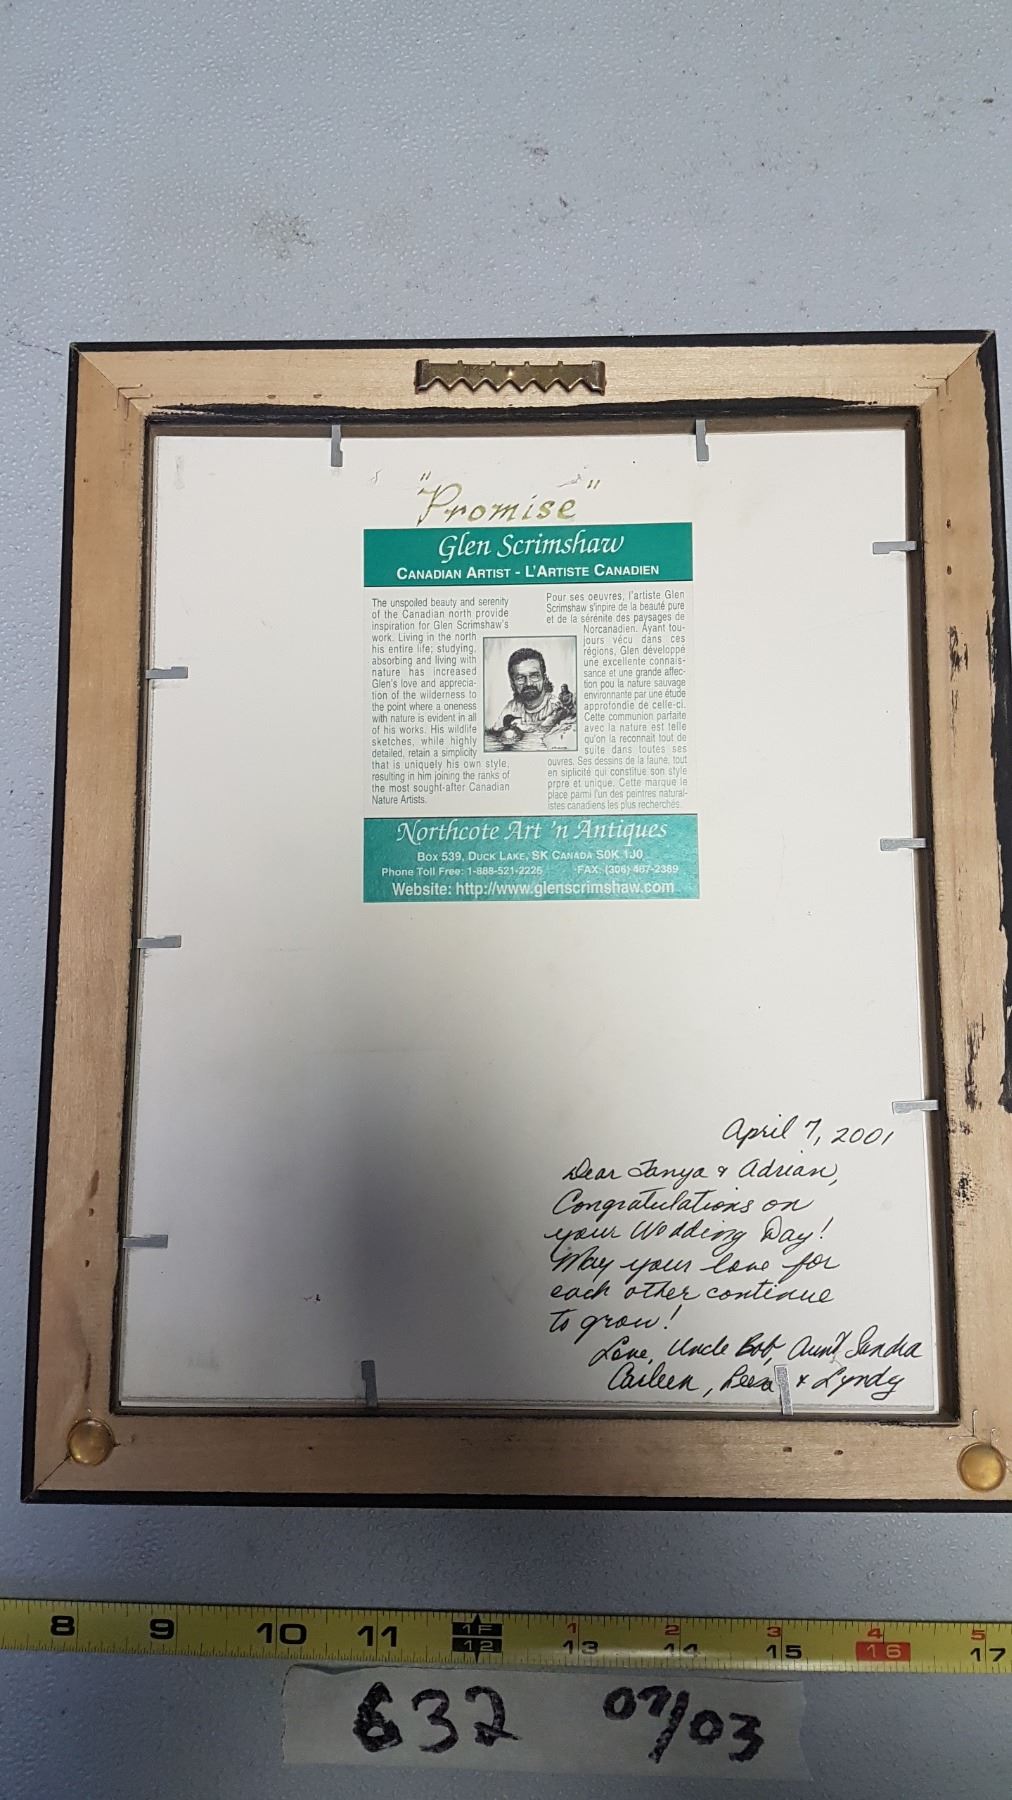 "Promise"
Glen Scrimshaw
CANADIAN ARTIST - L'ARTISTE CANADIEN
The unspoiled beauty and serenity
of the Canadian north provide
inspiration for Glen Scrimshaw's
work. Living in the north
his entire life; studying,
absorbing and living with
nature has increased
Glen's love and apprecia-
tion of the wilderness to
the point where a oneness
with nature is evident in all
of his works. His wildlife
sketches, while highly
detailed, retain a simplicity
that is uniquely his own style,
resulting in him joining the ranks of
the most sought-after Canadian
Nature Artists.
Pour ses oeuvres, l'artiste Glen
Scrimshaw s'inpire de la beauté pure
et de la sérénite des paysages de
Norcanadien. Ayant tou-
jours vécu dans ces
régions, Glen développé
une excellente connais-
sance et une grande affec-
tion pou la nature sauvage
environnante par une étude
approfondie de celle-ci.
Cette communion parfaite
avec la nature est telle
qu'on la reconnait tout de
suite dans toutes ses
ouvres. Ses dessins de la faune, tout
en siplicité qui constitue son style
prpre et unique. Cette marque le
place parmi l'un des peintres natural-
istes canadiens les plus recherchés.
Northcote Art 'n Antiques
BOX 539, DUCK LAKE, SK CANADA S0K 1J0
Phone Toll Free: 1-888-521-2226 FAX: (306) 467-2389
Website: http://www.glenscrimshaw.com
April 7, 2001
Dear Tanya & Adrian,
Congratulations on
your Wedding Day!
May your love for
each other continue
to grow!
Love, Uncle Bob, Aunt Sandra
Carleen, & Lyndy
1F 1 2 3 4 5
8 9 10 11 12 13 14 15 16 17
632 07/03